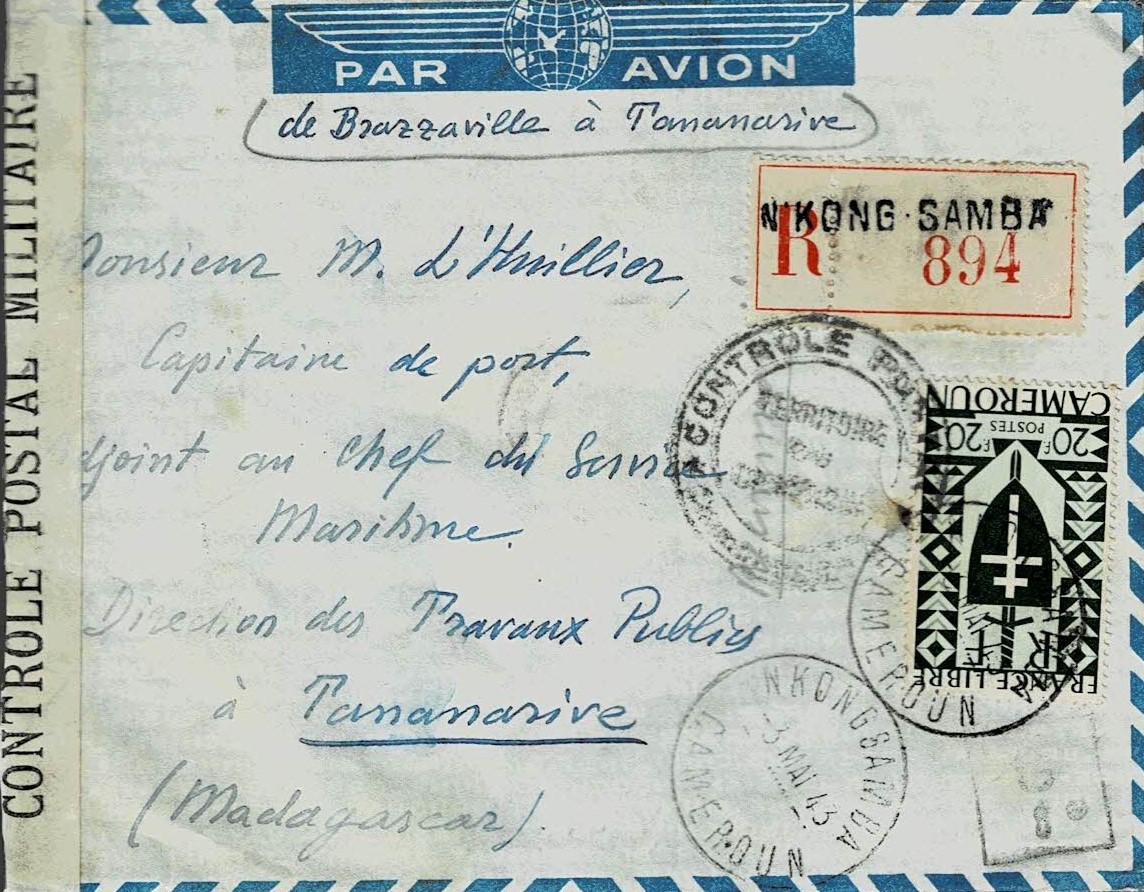 CONTROLE POSTAL MILITAIRE
PAR AVION
(de Brazzaville à Tananarive)
N'KONG·SAMBA
R 894
Monsieur M. L'Huillier,
Capitaine de port,
djoint au Chef du Service
Maritime.
Direction des Travaux Publics
à Tananarive
(Madagascar).
CONTRÔLE PO
TERRITOIRE
DU
CAMEROUN
20F POSTES 20F
RF
FRANCE LIBRE
CAMEROUN
NKONGSAMBA
3 MAI 43
CAMEROUN